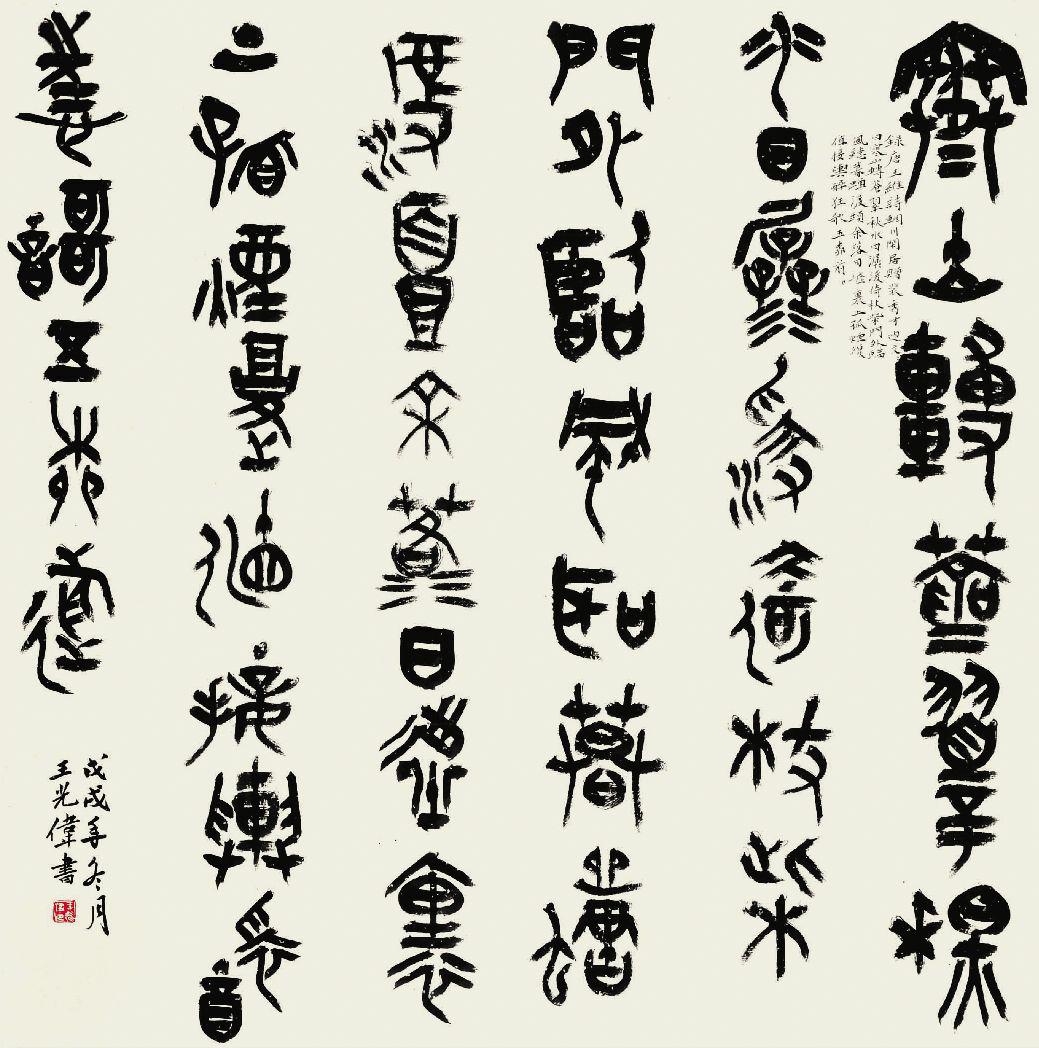 寒山轉蒼翠秋
水日潺湲倚杖柴
門外臨風聽暮蟬
渡頭余落日墟裏
上孤煙復值接輿醉
狂歌五柳前
録唐王維詩輞川閒居贈裴秀才迪文
曰寒山轉蒼翠秋水日潺湲倚杖柴門外臨
風聽暮蟬渡頭余落日墟裏上孤煙復
值接輿醉狂歌五柳前。
戊戌年冬月
王光偉書